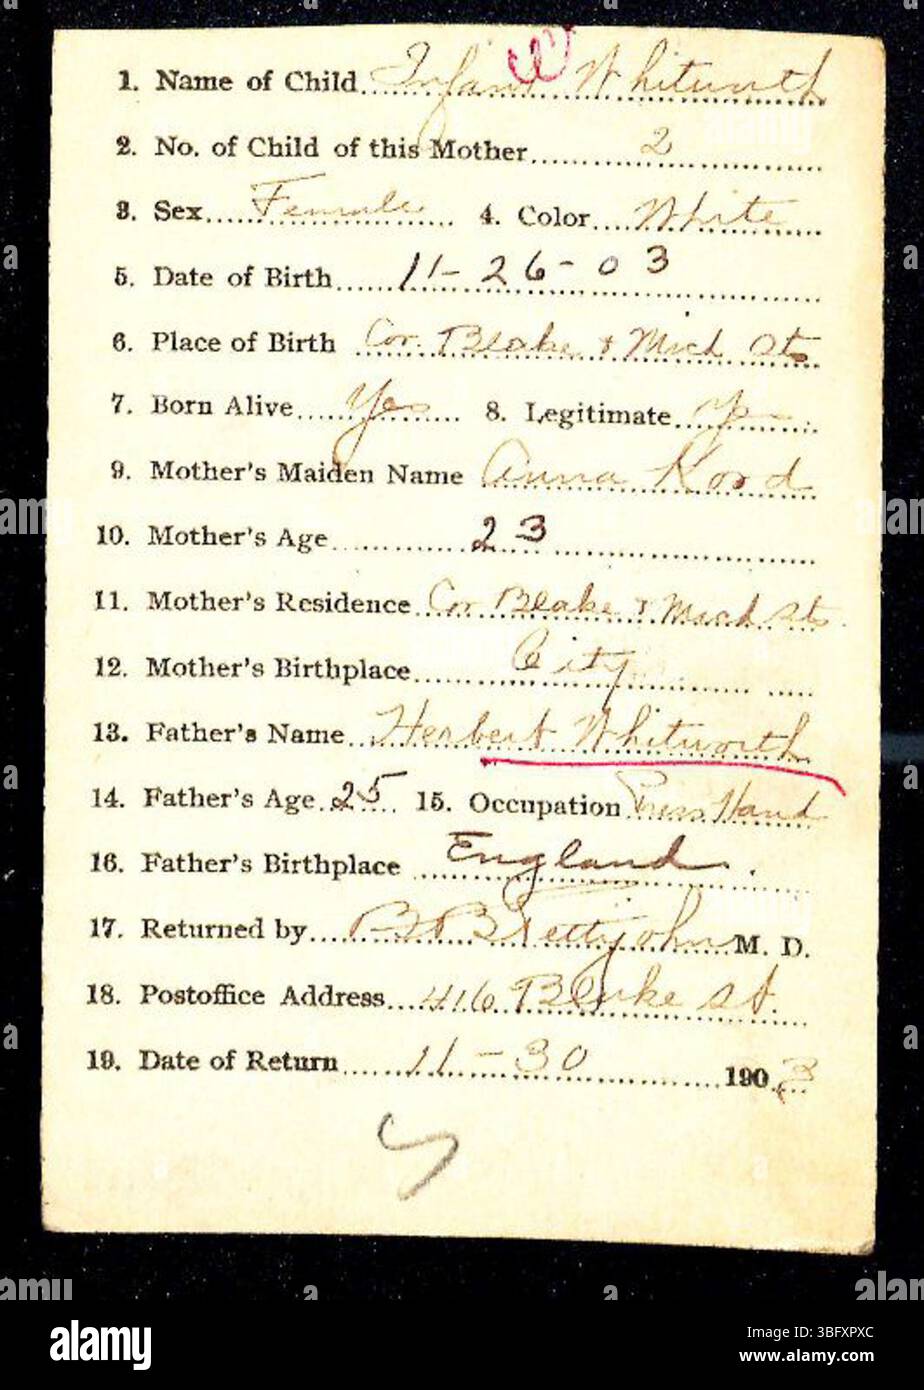 1. Name of Child Infant Whitworth
2. No. of Child of this Mother 2
3. Sex Female 4. Color White
5. Date of Birth 11-26-03
6. Place of Birth Cor. Blake & Mich Sts
7. Born Alive Yes 8. Legitimate Yes
9. Mother's Maiden Name Anna Kord
10. Mother's Age 23
11. Mother's Residence Cor Blake & Mich Sts
12. Mother's Birthplace City
13. Father's Name Herbert Whitworth
14. Father's Age 25 15. Occupation Press Hand
16. Father's Birthplace England
17. Returned by Pettijohn M. D.
18. Postoffice Address 416 Blake St.
19. Date of Return 11-30 1903
alamy
Image ID: 3BFXPXC
www.alamy.com